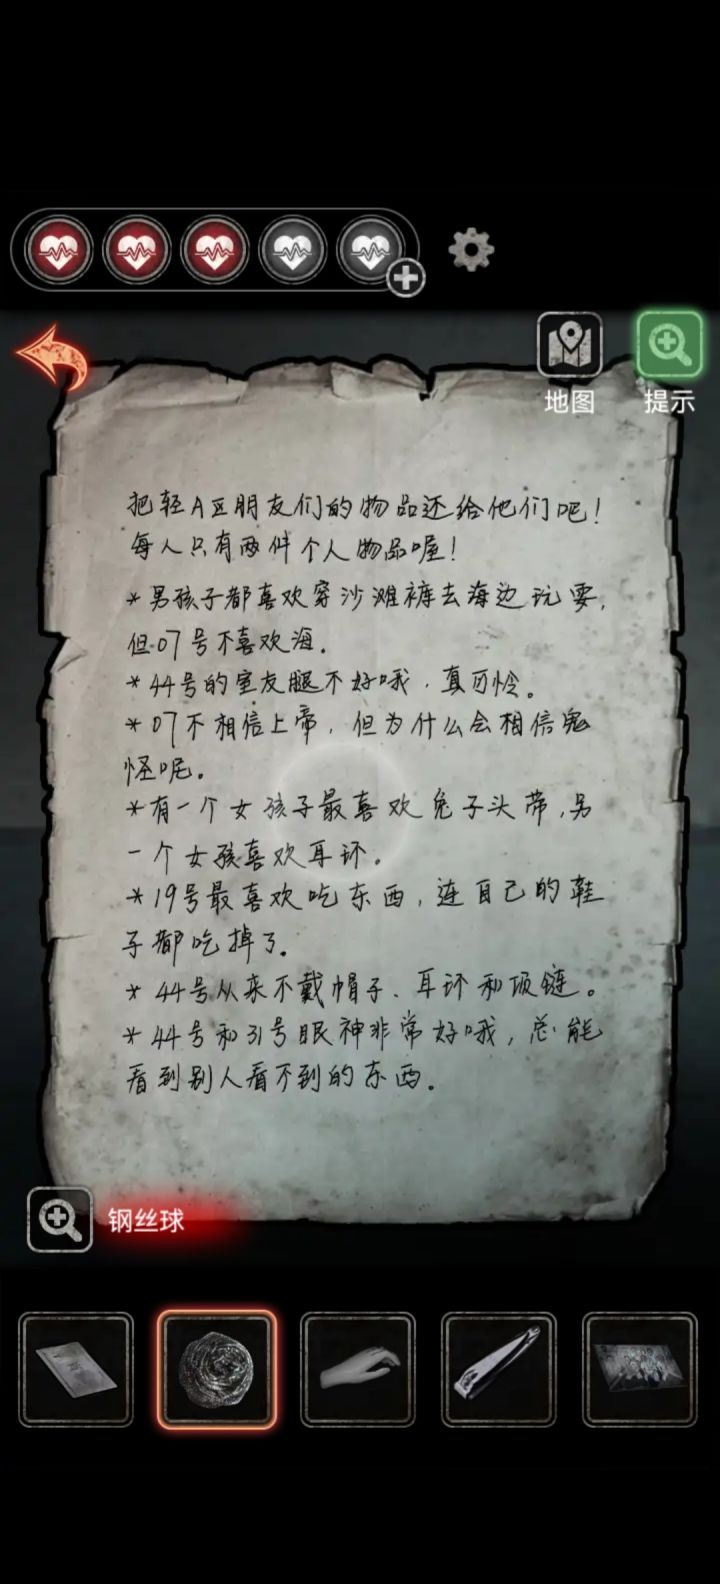 地图
提示
把轻A区朋友们的物品还给他们吧！
每人只有两件个人物品喔！
*男孩子都喜欢穿沙滩裤去海边玩耍，
但07号不喜欢海。
*44号的室友腿不好哦，真可怜。
*07不相信上帝，但为什么会相信鬼
怪呢。
*有一个女孩子最喜欢兔子头带，另
一个女孩喜欢耳环。
*19号最喜欢吃东西，连自己的鞋
子都吃掉了。
*44号从来不戴帽子、耳环和项链。
*44号和31号眼神非常好哦，总能
看到别人看不到的东西。
钢丝球